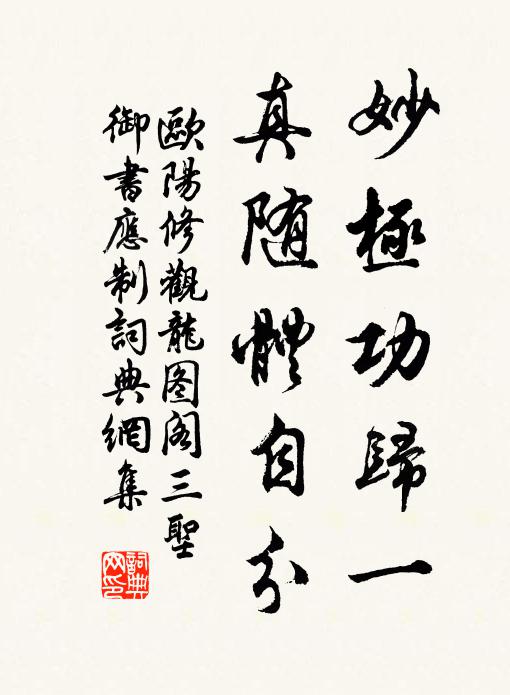 妙極功歸一
真随體自分
歐陽修觀龍图阁三聖
御書應制詞典網集
詞典
网印